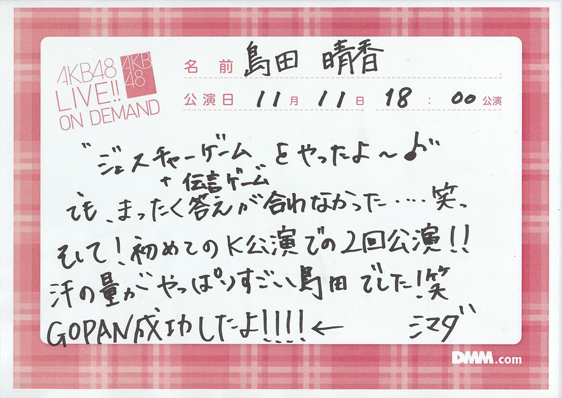 AKB48
LIVE!!
ON DEMAND
AKB
48
名前 島田 晴香
公演日 11月 11日 18:00公演
"ジェスチャーゲーム をやったよ～♪"
+ 伝言ゲーム
でも、まったく答えが合わなかった‥‥笑。
そして!初めてのK公演での2回公演!!
汗の量がやっぱりすごい島田でした!笑
GOPAN成功したよ!!!!← シマダ
DMM.com